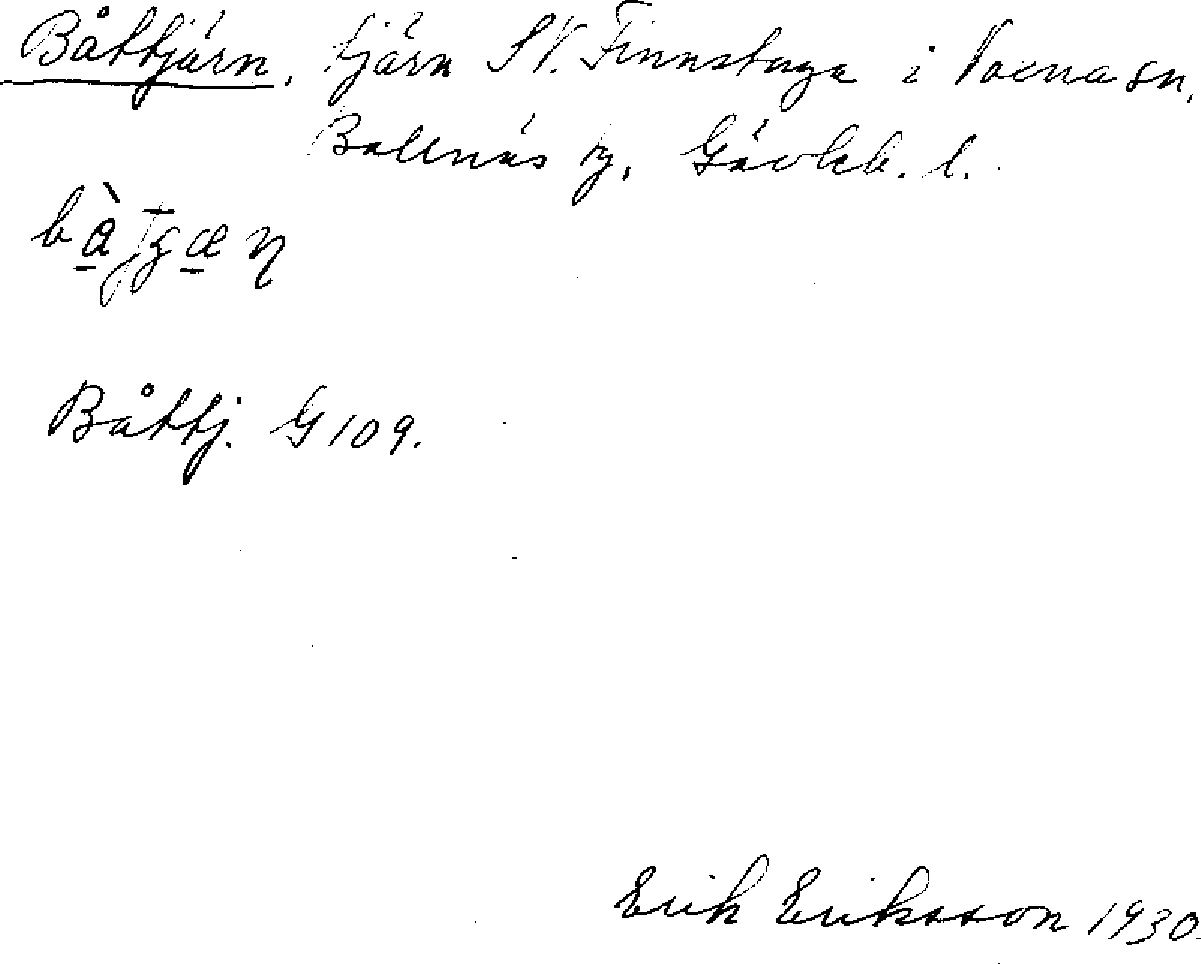 Båttjärn, tjärn SV. Finnstuga i Voxna sn,
Bollnäs tg, Gävleb. l.
Båttj. G 109.
Erik Eriksson 1930.